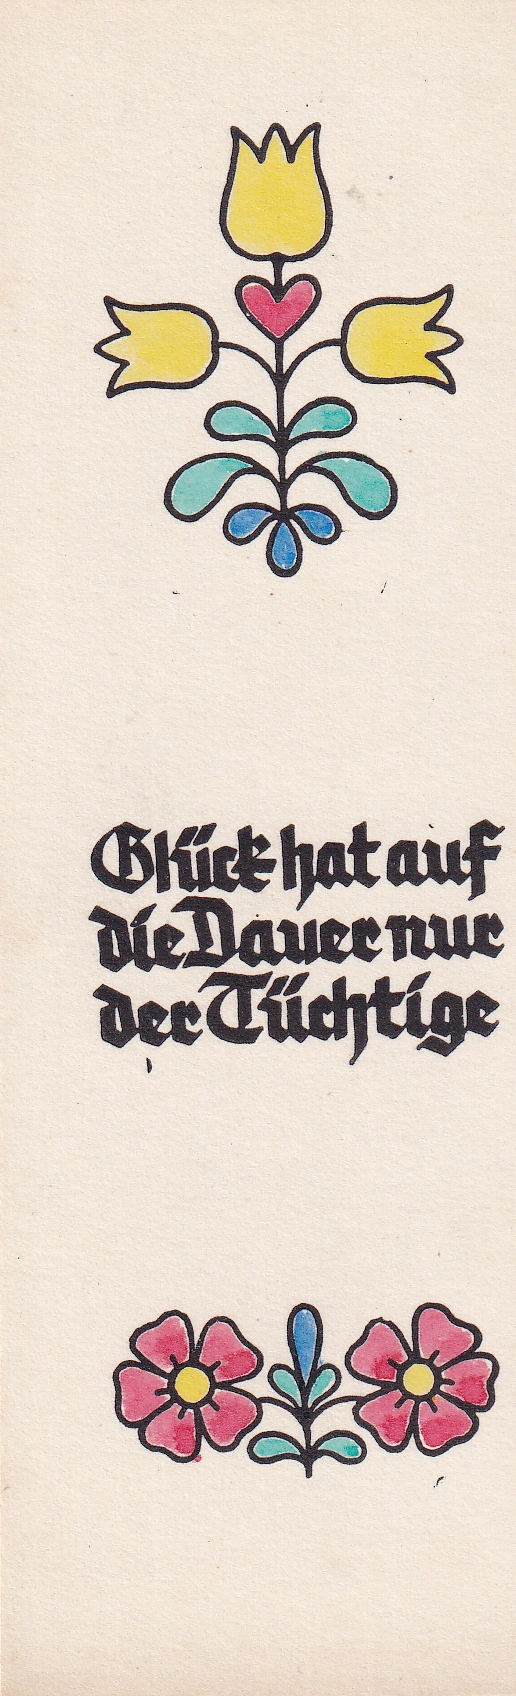 Glück hat auf
die Dauer nur
der Tüchtige